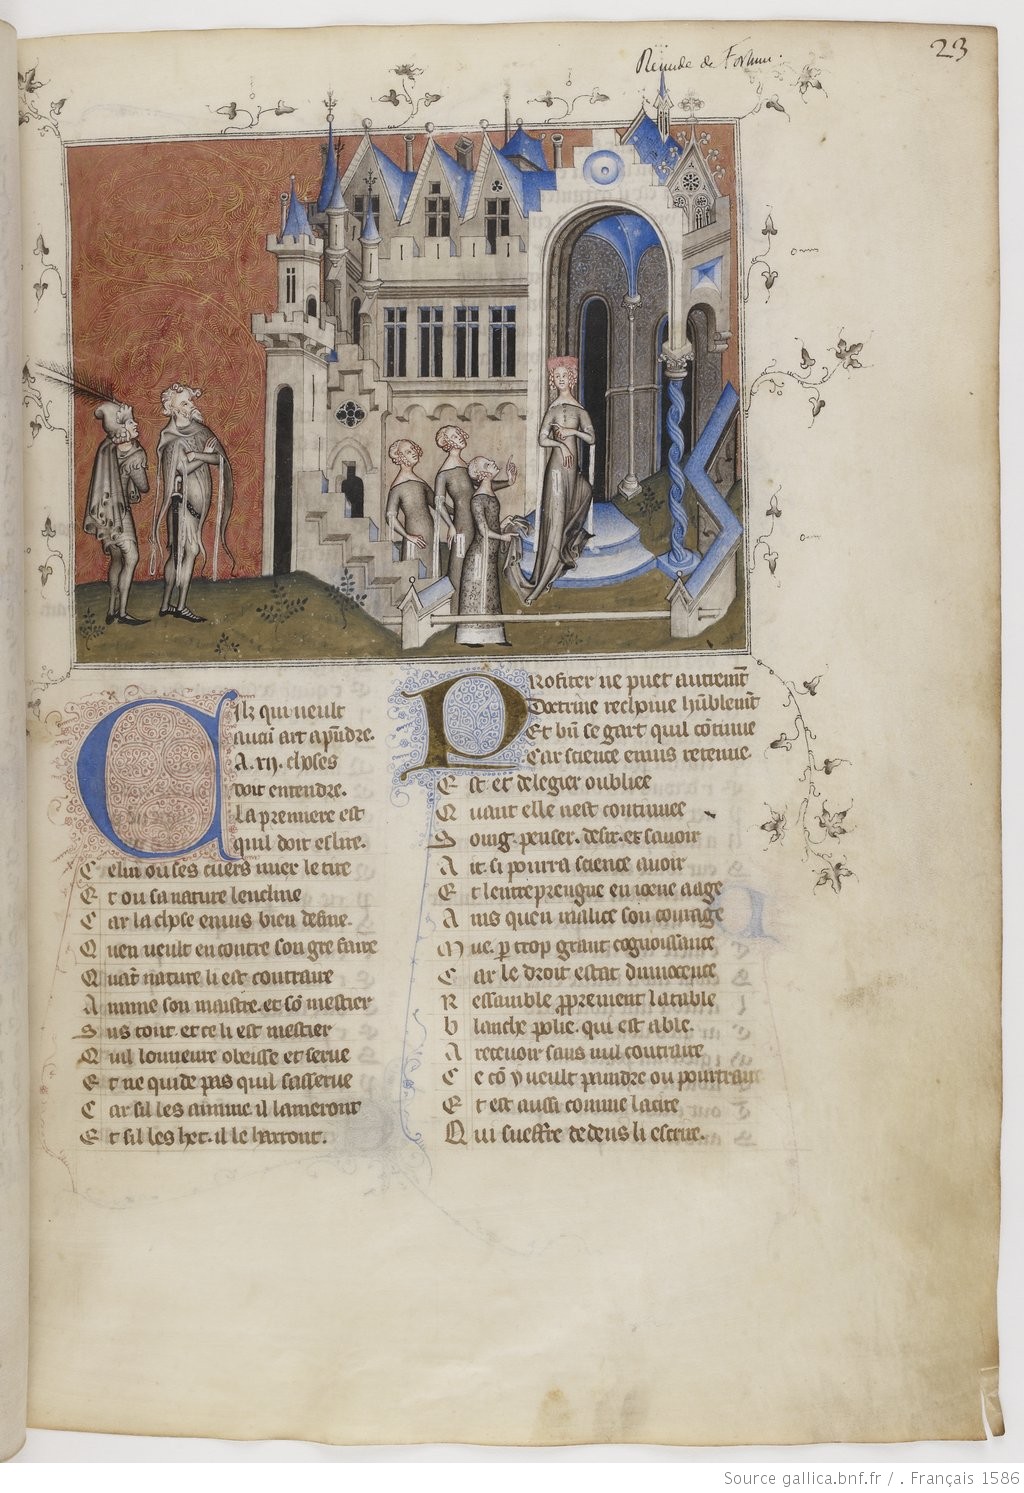 Remede de Fortune.
23
Cilz qui veult
aucun art apendre.
A .xij. choses
doit entendre.
La premiere est
quil doit eslire.
Celui ou ses cuers miex le tire
Et ou sa nature lencline
Car la chose enuis bien define.
Quen veult encontre son gre faire
Quant nature li est contraire
Aimme son maistre. et son mestier
Sus tout. et ce li est mestier
Quil lonneure obeisse et serue
Et ne quide pas quil sasserue
Car sil les aimme il lameront
Et sil les het. il le harront.
Profiter ne puet autrement
Doctrine recoiue humblement
Et bien se gart quil continue
Car science enuis retenue
Est et de legier oubliee
Quant elle nest continuee
Soing. penser. desir. et sauoir
Ait. si pourra science auoir
Et lentreprengne en ioene aage
Ains quen malice son courage
Mue. par trop grant cognoissance
Car le droit estat dinnocence
Ressamble proprement la table
Blanche polie. qui est able.
A receuoir sans nul contraire
Ce con y veult paindre ou pourtraire
Et est aussi comme la cire
Qui sueffre dedens li escrire.
Source gallica.bnf.fr / . Français 1586